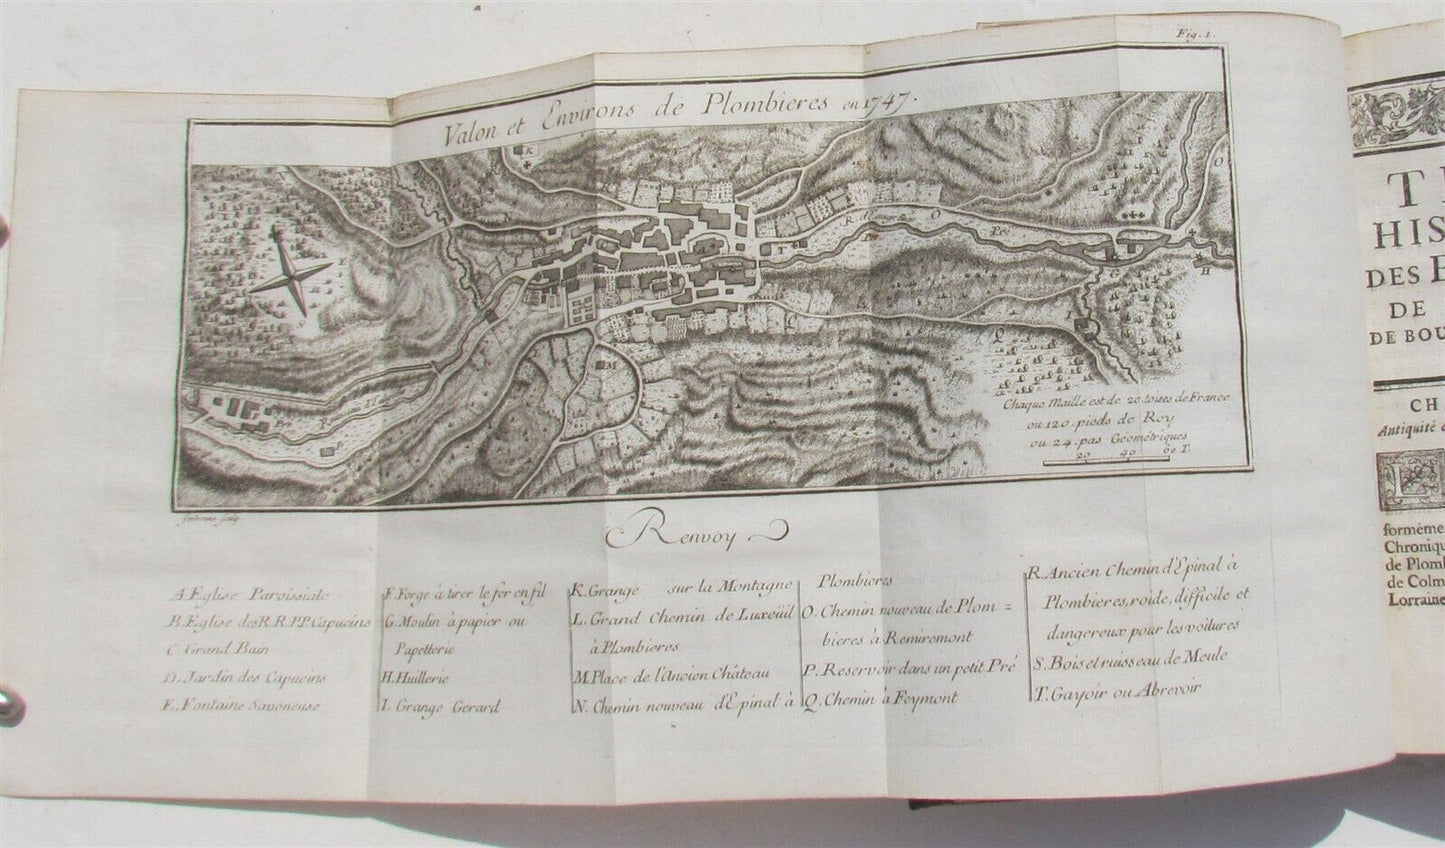 Fig. 1.
Valon et Environs de Plombieres en 1747.
Chaque Maille est de 20. toises de France
ou 120. pieds de Roy
ou 24. pas Geométriques
20 40 60 T.
Renvoy
A. Eglise Paroissiale
B. Eglise des R.R.P.P. Capucins
C. Grand Bain
D. Jardin des Capucins
E. Fontaine Savoneuse
F. Forge à tirer le fer en fil
G. Moulin à papier ou
Papetterie
H. Huillerie
I. Grange Gerard
K. Grange sur la Montagne
L. Grand Chemin de Luxeüil
à Plombieres
M. Place de l'Ancien Château
N. Chemin nouveau d'Epinal à
Plombieres
O. Chemin nouveau de Plom =
bieres à Remiremont
P. Reservoir dans un petit Pré
Q. Chemin à Feymont
R. Ancien Chemin d'Epinal à
Plombieres, roide, difficile et
dangereux pour les voitures
S. Bois et ruisseau de Meule
T. Gayoir ou Abrevoir
HIS
DES
DE
DE BOU
CH
Antiquité
formeme
Chroniqu
de Plomb
de Colm
Lorraine